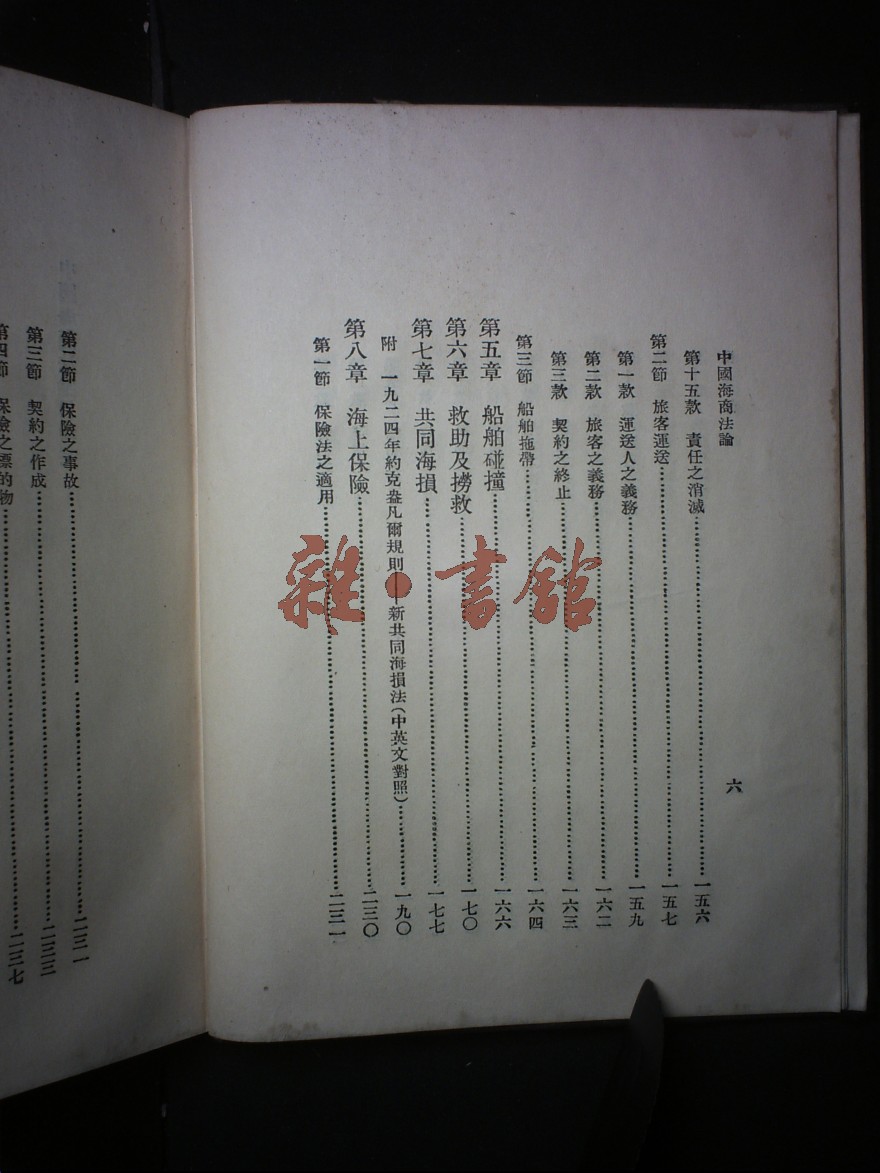 中國海商法論
六
第十五款 責任之消滅……一五六
第二節 旅客運送……一五七
第一款 運送人之義務……一五九
第二款 旅客之義務……一六二
第三款 契約之終止……一六三
第三節 船舶拖帶……一六四
第五章 船舶碰撞……一六六
第六章 救助及撈救……一七〇
第七章 共同海損……一七七
附 一九二四年約克盎凡爾規則——新共同海損法(中英文對照)……一九〇
第八章 海上保險……二三〇
第一節 保險法之適用……二三一
第二節 保險之事故……二三一
第三節 契約之作成……二三三
第四節 保險之標的物……二三七
雜·書館